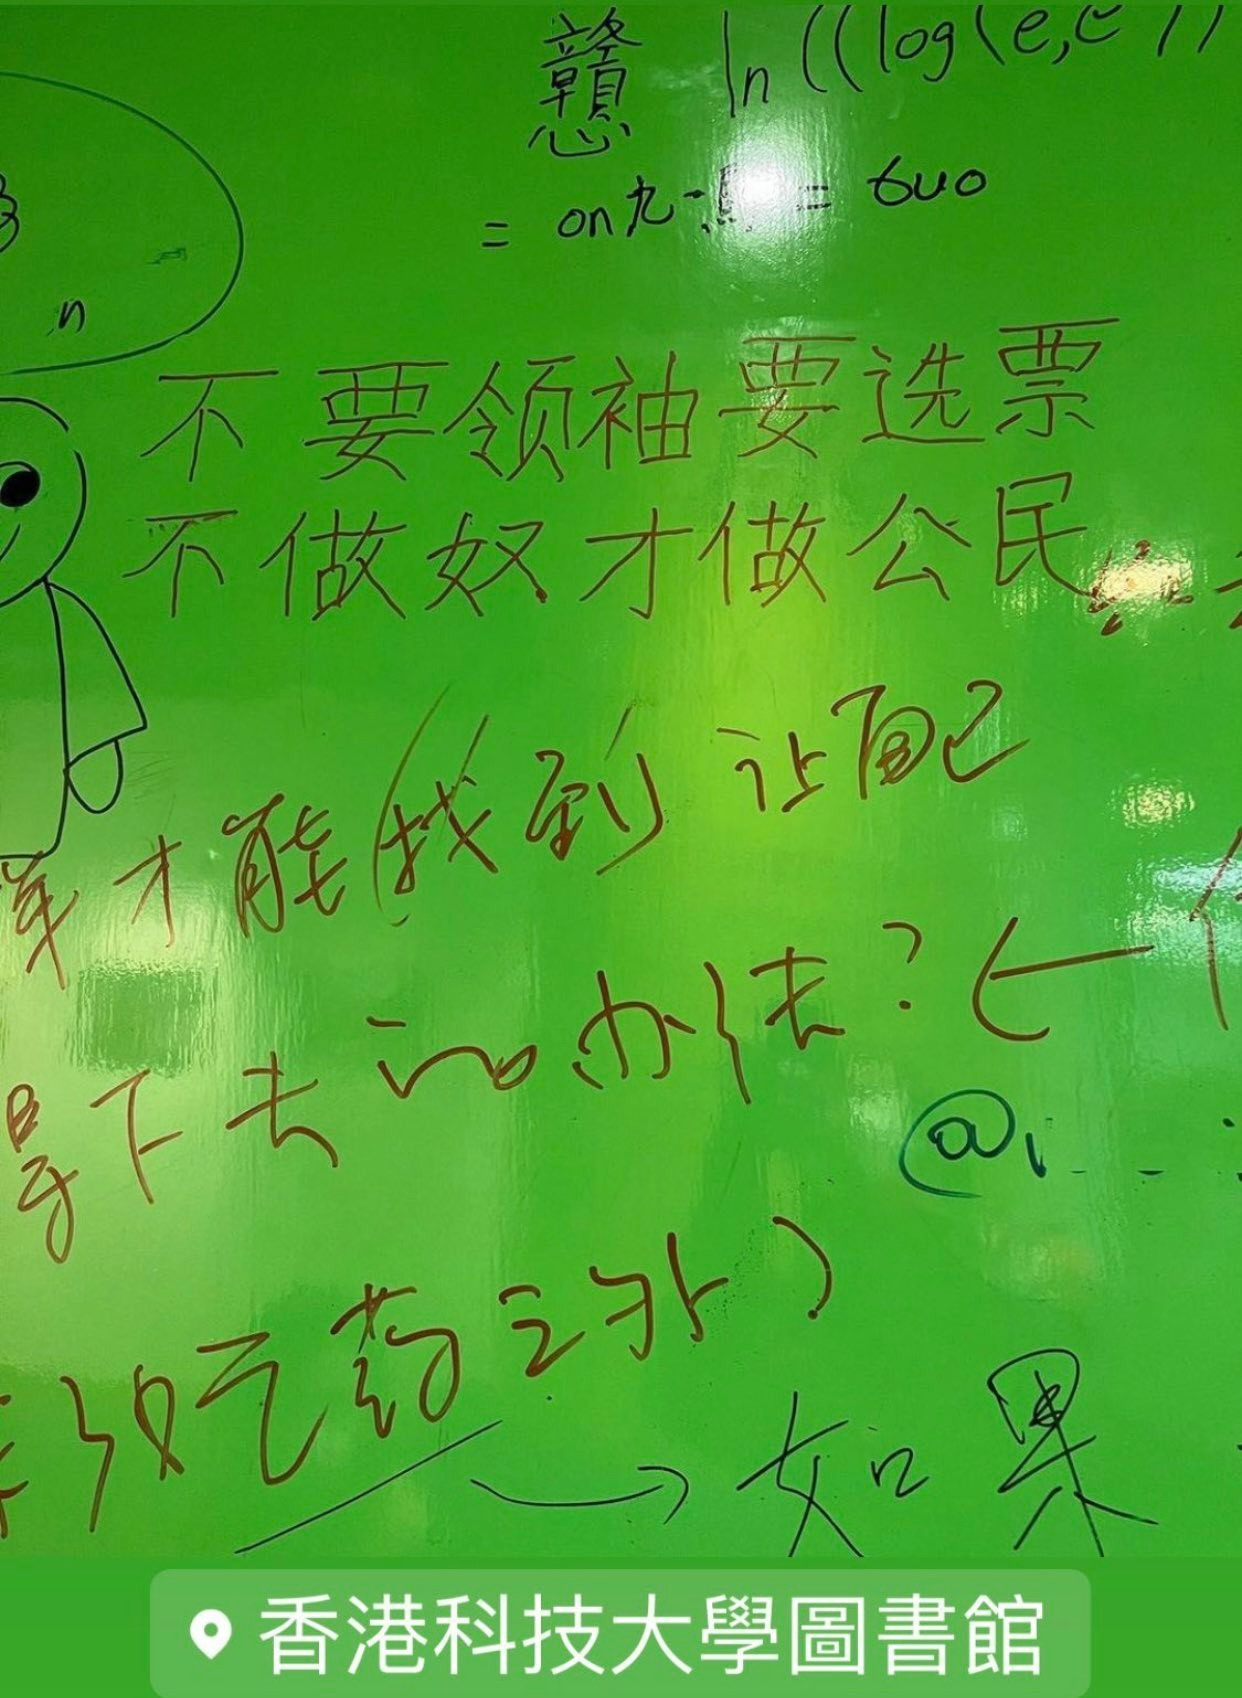 戇 ln((log(e,e
= on九 = 6uo
n
不要领袖要选票
不做奴才做公民
才能(找到 让配
下去的办法?(一
@
吃药之外)
如果
香港科技大學圖書館